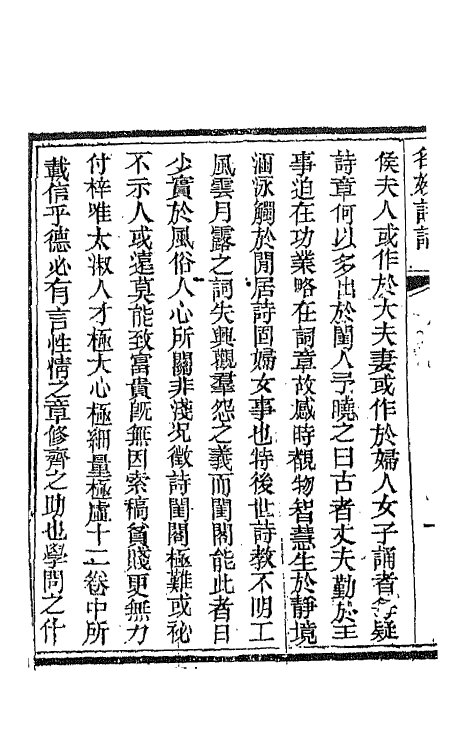 名媛詩話
一
侯夫人或作於大夫妻或作於婦人女子誦者疑
詩章何以多出於閨人予曉之曰古者丈夫勤於王
事迫在功業略在詞章故感時覩物智慧生於靜境
涵泳觸於閒居詩固婦女事也特後世詩教不明工
風雲月露之詞失興觀羣怨之義而閨閣能此者日
少實於風俗人心所關非淺况徵詩閨閣極難或祕
不示人或遠莫能致富貴旣無因索稿貧賤更無力
付梓唯太淑人才極大心極細量極虛十二卷中所
載信乎德必有言性情之章修齊之助也學問之什